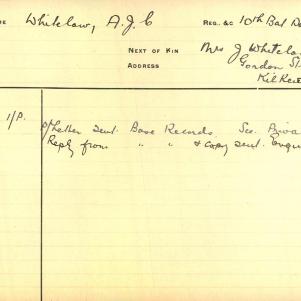 Whitelaw, A.J.C REG. &C 10th Bat
NEXT OF KIN Mrs J Whitelaw
ADDRESS Gordon St
1/P. Letter sent Base Records. See
Reply from " " & copy sent